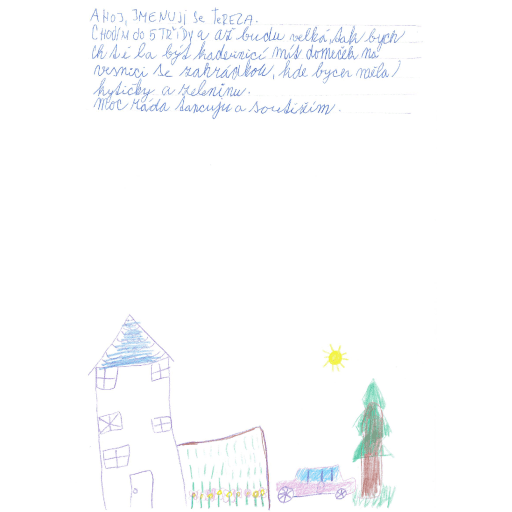 AHOJ, JMENUJI SE TEREZA.
CHODÍM do 5 TŘÍDY a až budu velká, tak bych
chtěla být kadeřnicí mít domeček na
vesnici se zahrádkou, kde bych měla
kytičky a zeleninu.
moc ráda tancuju a soutěžím.